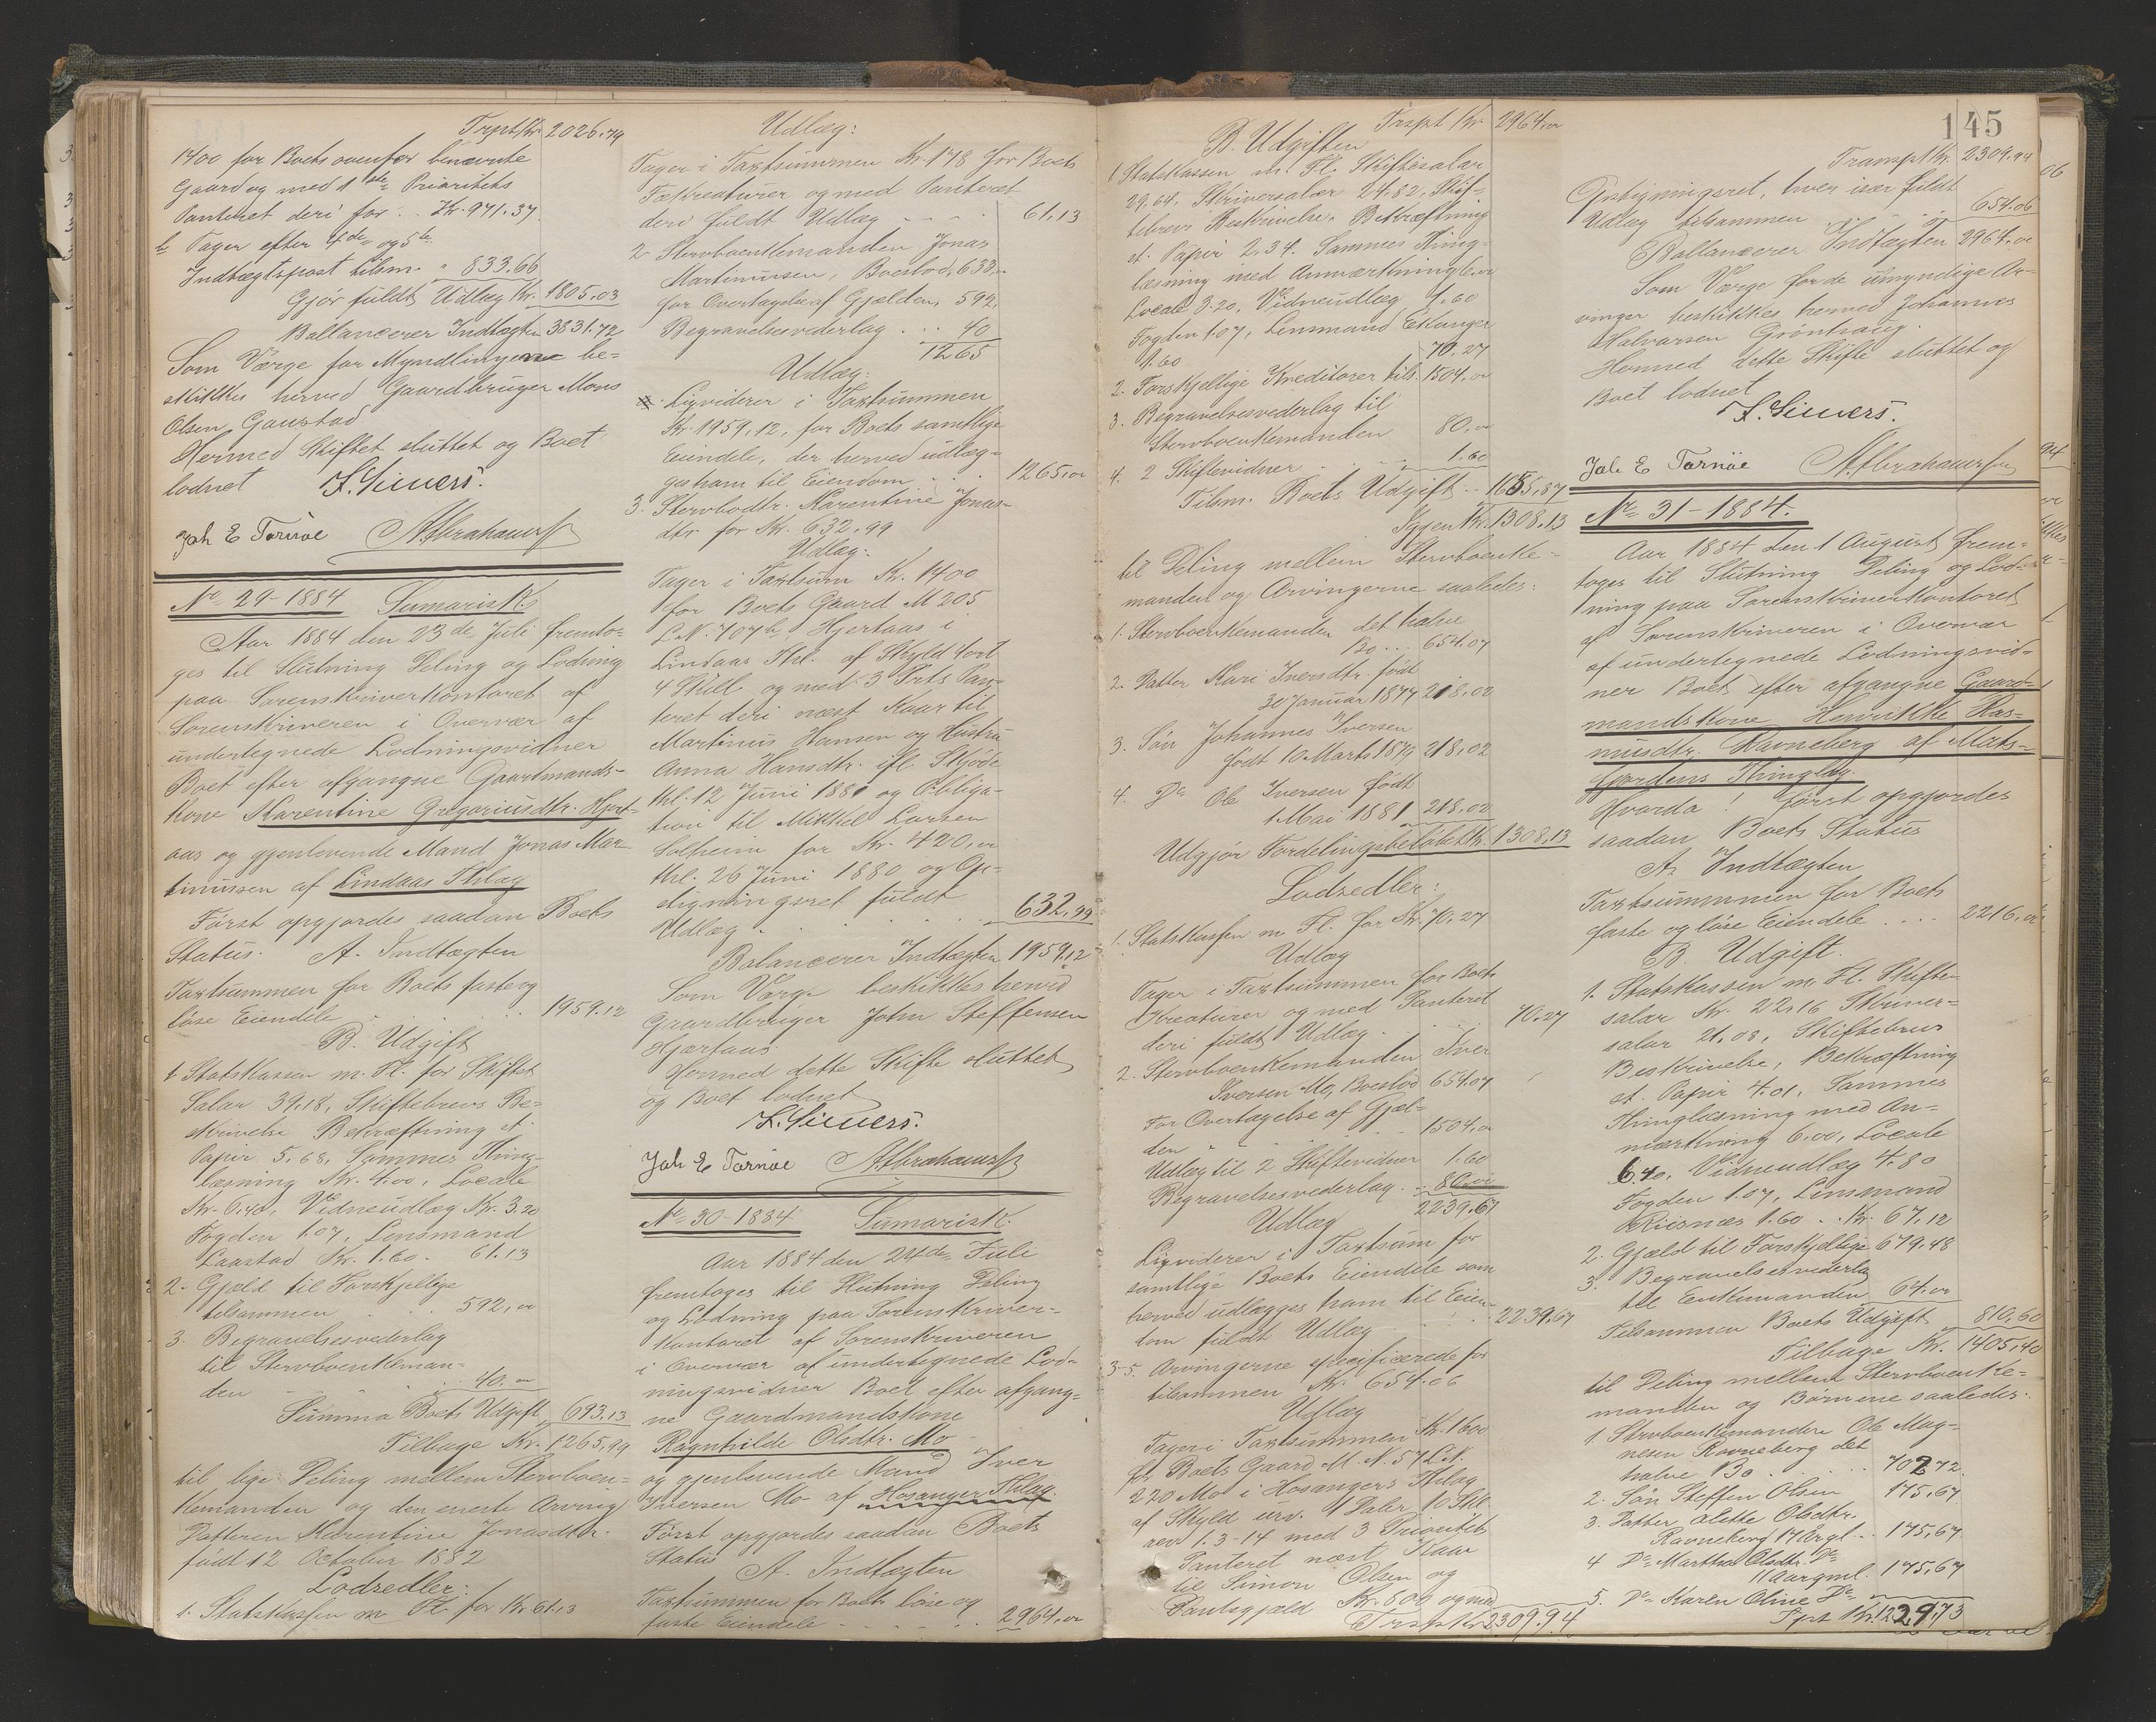 Trpt Kr. 2026.79
1400 for Boets ovenfor benævnte
Gaard og med 1ste Prioritets
Panteret deri for .. Kr. 971.37
b Tager efter 4de og 5te
Indtægtspost tilsm. " 833.66
Gjør fuldt Udlæg Kr. 1805.03
Ballancerer Indtægten 3831.72
Som Værge for Myndlingerne be=
skikkes herved Gaardbruger Mons
Olsen Gaustad
Hermed Skiftet sluttet og Boet
lodnet
Joh E Tornöe
No 29-1884 Sumarisk
Aar 1884 den 23de Juli fremto-
ges til Slutning Deling og Lodning
paa Sorenskriverkontoret af
Sorenskriveren i Overvær af
undertegnede Lodningsvidner
Boet efter afgangne Gaardmands-
kone Karentine Gregoriusdtr. Hjert-
aas og gjenlevende Mand Jonas Mar-
tinussen af Lindaas Thlag
Først opgjordes saadan Boets
Status. A. Indtægten
Taxtsummen for Boets faste og
løse Eiendele . . . 1959.12
B. Udgift
1 Statskassen m. Fl. for Skiftet
Salar 39.18, Skiftebrevs Be=
skrivelse Bekræftning st.
Papir 5.68, Sammes Thing-
læsning Kr. 4.00, Locale
Kr. 6.40, Vidneudlæg Kr. 3.20
Fogden 1.07, Lensmand
Laastad Kr. 1.60. 61.13
2. Gjæld til Forskjellige
tilsammen . . . 592,00
3. Begravelsesvederlag
til Stervboenkeman=
den . . . 40.00
Summa Boets Udgift 693.13
Tilbage Kr. 1265.99
til lige Deling mellem Stervboen=
kemanden og den eneste Arving
Datteren Karentine Jonasdtr.
født 12 October 1882
Lodsedler:
1. Statskassen m Fl. for Kr. 61.13
Udlæg:
Tager i Taxtsummen Kr. 178 for Boets
Fækreaturer og med Panteret
deri fuldt Udlæg - - - 61.13
2 Stervboenkemanden Jonas
Martinussen, Boeslod, 633,00
for Overtagelse af Gjælden, 592.
Begravelsesvederlag . . . 40
1265
Udlæg:
Liqviderer i Taxtsummen
Kr. 1959.12, for Boets samtlige
Eiendele, der herved udlæg=
ges ham til Eiendom . . . 1265,00
3. Stervbodtr. Karentine Jonas-
dtr for Kr. 632,99
Udlæg:
Tager i Taxtsum Kr. 1400
for Boets Gaard M 205
L.N. 707b, Hjertaas i
Lindaas Thl. af Skyld 4 ort
4 Skill og med 3 Prts Pan-
teret deri næst Kaar til
Martinus Hansen og Hustru
Anna Hansdtr. ifl. Skjøde
thl. 12 Juni 1880 og Obliga-
tion til Mikkel Larsen
Solheim for Kr. 420,00
thl. 26 Juni 1880 og Op-
stigningsret fuldt
Udlæg . . . 632.99
Balancerer Indtægten 1959.12
Som Værge beskikkes herved
Gaardbruger John Steffensen
Hjærtaas
Hermed dette Skifte sluttet
og Boet lodnet
Joh E Tornöe
No 30-1884 Sumarisk.
Aar 1884 den 24de Juli
fremtoges til Slutning Deling
og Lodning paa Sorenskriver=
kontoret af Sorenskriveren
i Overvær af undertegnede Lod=
ningsvidner Boet efter afgang=
ne Gaardmandskone
Ragnhilde Olsdtr. Mo
og gjenlevende Mand Iver
Iversen Mo af Hosanger Thlag.
Først opgjordes saadan Boets
Status
A. Indtægten
Taxtsummen for Boets løse og
faste Eiendele . . . 2964,00
Trspt Kr. 2964.00
B. Udgiften
1 Statskassen m. Fl. Skiftesalar
29.64, Skriversalar 24.82, Skif-
tebrevs Beskrivelse, Bekræftning
st. Papir 2.34. Sammes Thing-
læsning med Anmærkning 6.00
Locale 3.20, Vidneudlæg 1.60
Fogden 1.07, Lensmand Eknanger
1.60 70.27
2. Forskjellige Kreditorer tils. 1504.00
3. Begravelsesvederlag til
Stervboenkemanden 80.00
4. 2 Skiftevidner . . 1.60
Tilsm. Boets Udgift .. 1655,87
Igjen Kr. 1308.13
til Deling mellem Stervboenke-
manden og Arvingerne saaledes:
1. Stervboenkemanden det halve
Bo ... 654.07
2. Datter Kari Iversdtr. født
30 Januar 1877 218.02
3. Søn Johannes Iversen
født 10 Marts 1879 218.02
4. Do Ole Iversen født
1 Mai 1881 218.02
Udgjør Fordelingsbeløbet Kr. 1308.13
Lodsedler:
1. Statskassen m Fl. for Kr. 70.27
Udlæg
Tager i Taxtsummen for Boets
Kreaturer og med Panteret
deri fuldt Udlæg . . . 70.27
2. Stervboenkemanden Iver
Iversen Mo, Boeslod 654.07
For Overtagelse af Gjæl-
den . . . 1504.00
Udlæg til 2 Skiftevidner 1.60
Begravelsesvederlag . . 80.00
2239.67
Udlæg
Liqviderer i Taxtsum for
samtlige Boets Eiendele som
herved udlægges ham til Eien-
dom fuldt Udlæg . . 2239,67
3-5. Arvingerne specificerede for
tilsammen Kr. 654.06
Udlæg
Tager i Taxtsummen Kr. 1600
for Boets Gaard M. N. 57 L.N.
220 Mo i Hosangers Thlag
af Skyld urv. 1 Daler 10 Skill
rev 1.3-14 med 3 Prioritets
Panteret næst Kaar
til Simon Olsen og
Pantegjæld Kr. 800 og med
Trspt Kr 2309.94
145
Transpt Kr. 2309.94
Opstigningsret, hver især fuldt
Udlæg tilsammen . . . 654.06
Ballancerer Indtægten 2964.00
Som Værge for de umyndige Ar-
vinger beskikkes herved Johannes
Halvarsen Grønhaug.
Hermed dette Skifte sluttet og
Boet lodnet
Joh E Tornöe
No 31-1884.
Aar 1884 den 1 August frem-
toges til Slutning Deling og Lod-
ning paa Sorenskriverkontoret
af Sorenskriveren i Overvær
af undertegnede Lodningsvid=
ner Boet efter afgangne Gaard-
mandskone Henrikke Ras-
musdtr. Ravneberg af Mats-
fjordens Thinglag.
Hvorda! først opgjordes
saadan Boets Status
A. Indtægten
Taxtsummen for Boets
faste og løse Eiendele . . . 2216,00
B. Udgift.
1. Statskassen m. Fl. Skifte-
salar Kr. 22.16 Skriver-
salar 21.08, Skiftebrevs
Beskrivelse, Bekræftning
st. Papir 4.01, Sammes
Thinglæsning med An-
mærkning 6.00, Locale
6.40, Vidneudlæg 4.80
Fogden 1.07, Lensmand
Riisnæs 1.60 .. Kr. 67.12
2. Gjæld til Forskjellige 679.48
3. Begravelsesvederlag
til Enkemanden 64.00
Tilsammen Boets Udgift 810,60
Tilbage Kr. 1405,40
til Deling mellem Stervboenke-
manden og Børnene saaledes:
1. Stervboenkemanden Ole Mag-
nesen Ravneberg det
halve Bo . . . 702.72
2. Søn Steffen Olsen 175,67
3. Datter Alette Olsdtr.
Ravneberg 17 Argl .. 175,67
4 Do Marthe Olsdtr. Do
11 Aargml. 175,67
5. Do Karen Oline Do
Tpt Kr. 1229,73